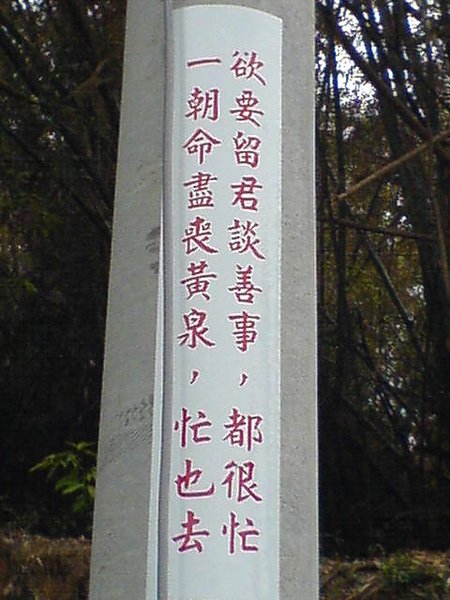 欲要留君談善事，都很忙
一朝命盡喪黃泉，忙也去